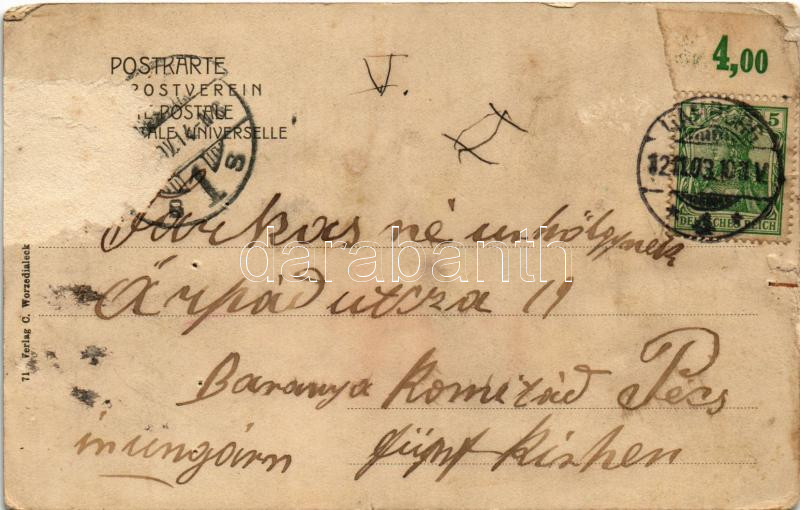 POSTKARTE
POSTVEREIN
POSTALE
UNIVERSELLE
V.
4,00
5
DEUTSCHES REICH
12.11.03.10-11V.
* d *
1
S
Farkas né urhölgynek
Árpád utcza 19
Baranya Komitád Pécs
in ungárn fünf Kirhen
71 Verlag C. Worzedialeck
darabanth